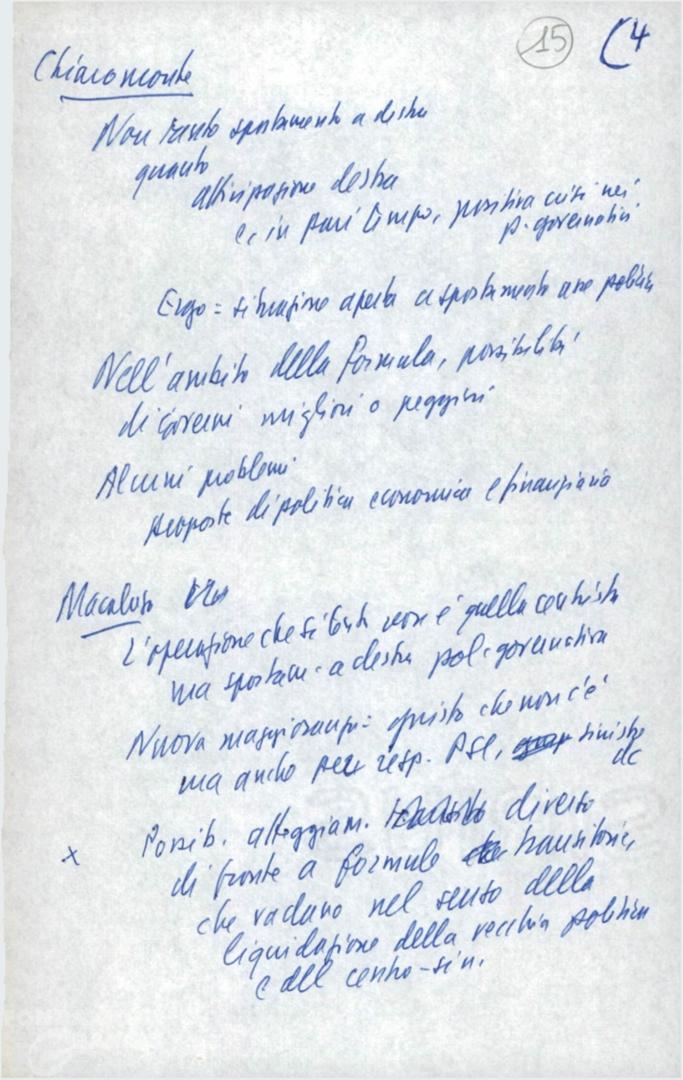 15 (4
Chiaromonte
Non tanto spostamento a destra
quanto
attivizzazione destra
e, in pari tempo, positiva crisi nei
p. governativi
Ergo = situazione aperta a spostamento asse politico
Nell'ambito della formula, possibilità
di governi migliori o peggiori
Alcuni problemi
proposte di politica economica e finanziaria
Macaluso
L'operazione che si tenta non è quella centrista
ma spostam. a destra pol. governativa
Nuova maggioranza: giusto che non c'è
ma anche per resp. PSI, sinistre
dc
x Possib. atteggiam. diverso
di fronte a formule transitorie,
che vadano nel senso della
liquidazione della vecchia politica
e del centro-sin.